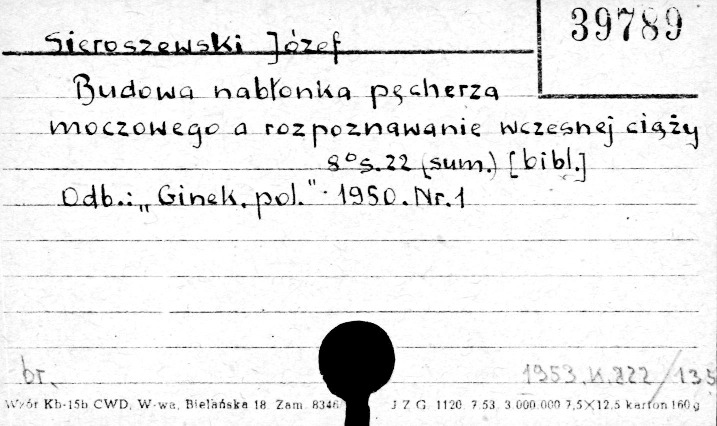 39789
Sieroszewski Józef
Budowa nabłonka pęcherza
moczowego a rozpoznawanie wczesnej ciąży
8° s. 22 (sum.) [bibl.]
Odb.: „Ginek. pol." 1950. Nr. 1
br. 1953.K.822/135
Wzór Kb-15b CWD, W-wa, Bielańska 18. Zam. 8346 J Z G. 1120. 7.53. 3.000.000 7,5×12,5 karton 160 g